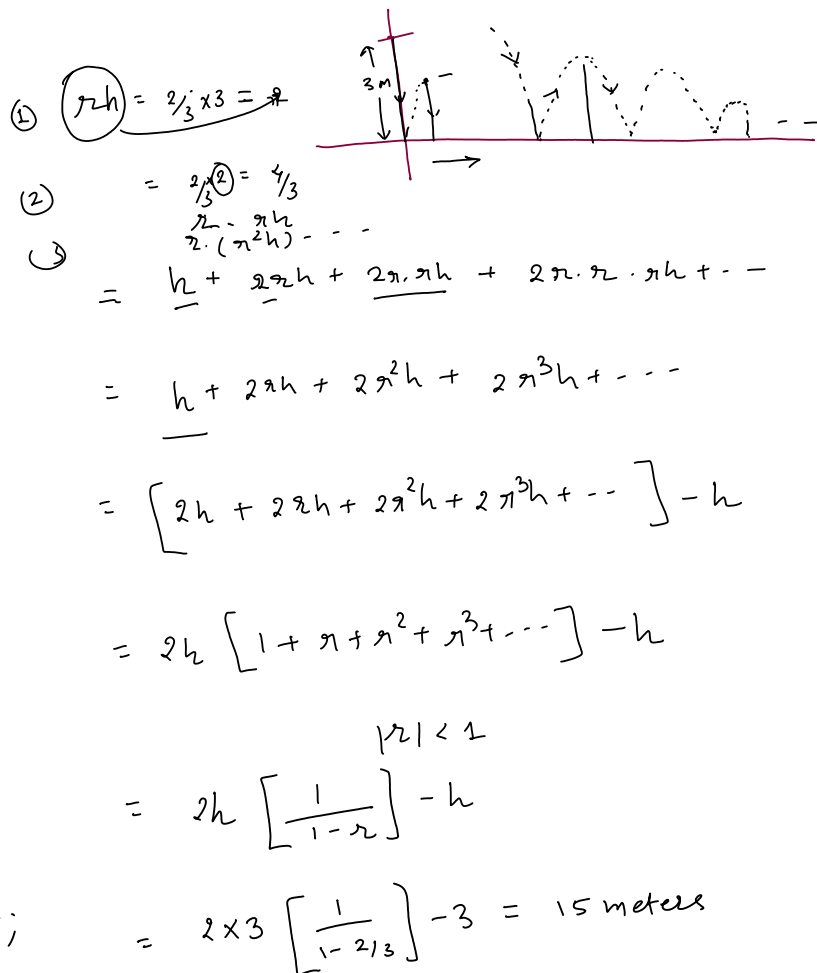 ① rh = 2/3 × 3 = 2
3 M
② = 2/3 × 2 = 4/3
r . rh
③ r . (r²h) - - -
= h + 2rh + 2r.rh + 2r.r.rh + - -
= h + 2rh + 2r²h + 2r³h + - - -
= [2h + 2rh + 2r²h + 2r³h + - - ] - h
= 2h [1 + r + r² + r³ + - - - ] - h
|r| < 1
= 2h [1/(1 - r)] - h
; = 2 × 3 [1/(1 - 2/3)] - 3 = 15 meters